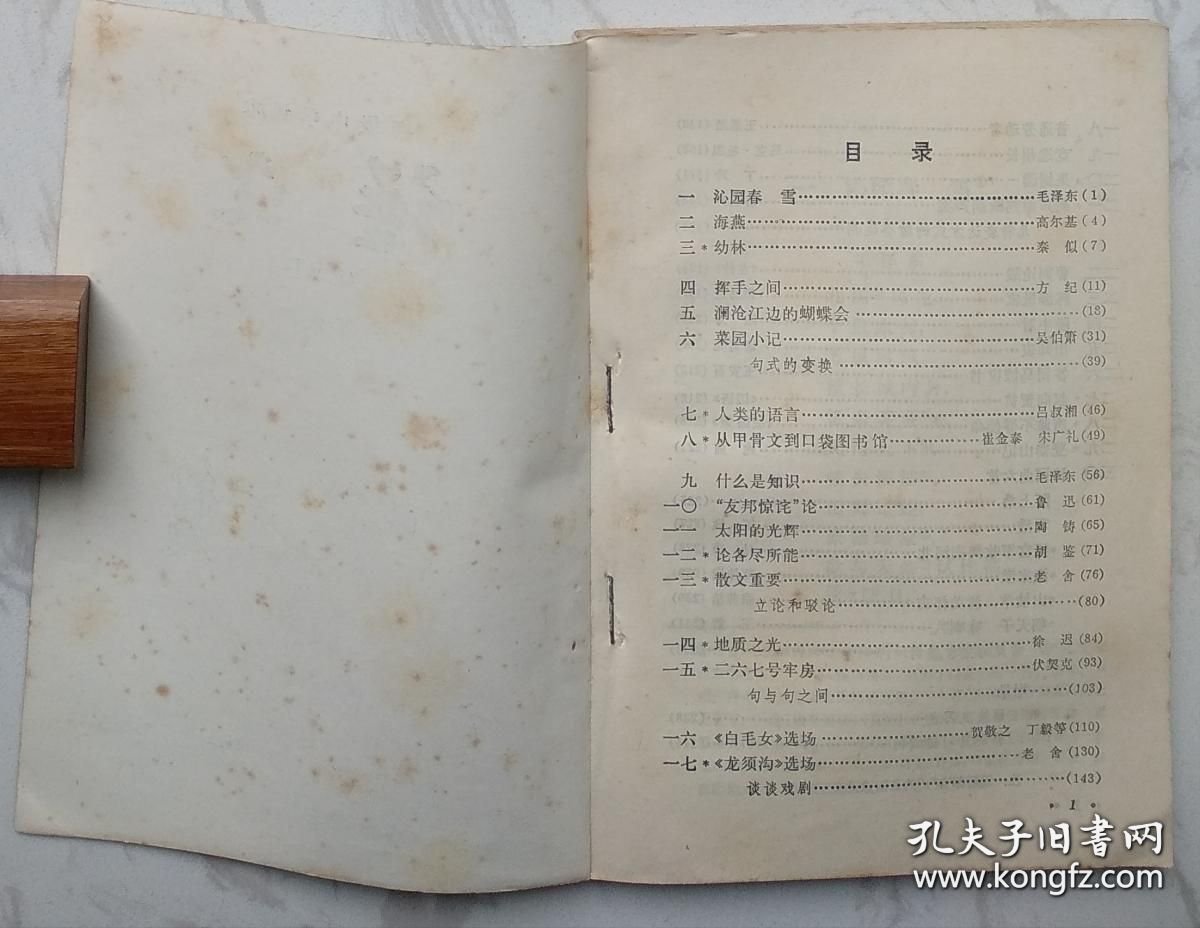 目 录
一 沁园春 雪……………………………毛泽东(1)
二 海燕……………………………高尔基(4)
三*幼林……………………………秦 似(7)
四 挥手之间……………………………方 纪(11)
五 澜沧江边的蝴蝶会……………………………(18)
六 菜园小记……………………………吴伯箫(31)
句式的变换……………………………(39)
七*人类的语言……………………………吕叔湘(46)
八*从甲骨文到口袋图书馆……………崔金泰 宋广礼(49)
九 什么是知识……………………………毛泽东(56)
一〇 “友邦惊诧”论……………………………鲁 迅(61)
一一 太阳的光辉……………………………陶 铸(65)
一二*论各尽所能……………………………胡 鉴(71)
一三*散文重要……………………………老 舍(76)
立论和驳论……………………………(80)
一四*地质之光……………………………徐 迟(84)
一五*二六七号牢房……………………………伏契克(93)
句与句之间……………………………(103)
一六 《白毛女》选场……………………贺敬之 丁毅等(110)
一七*《龙须沟》选场……………………………老 舍(130)
谈谈戏剧……………………………(143)
• 1 •
孔夫子旧书网
www.kongfz.com